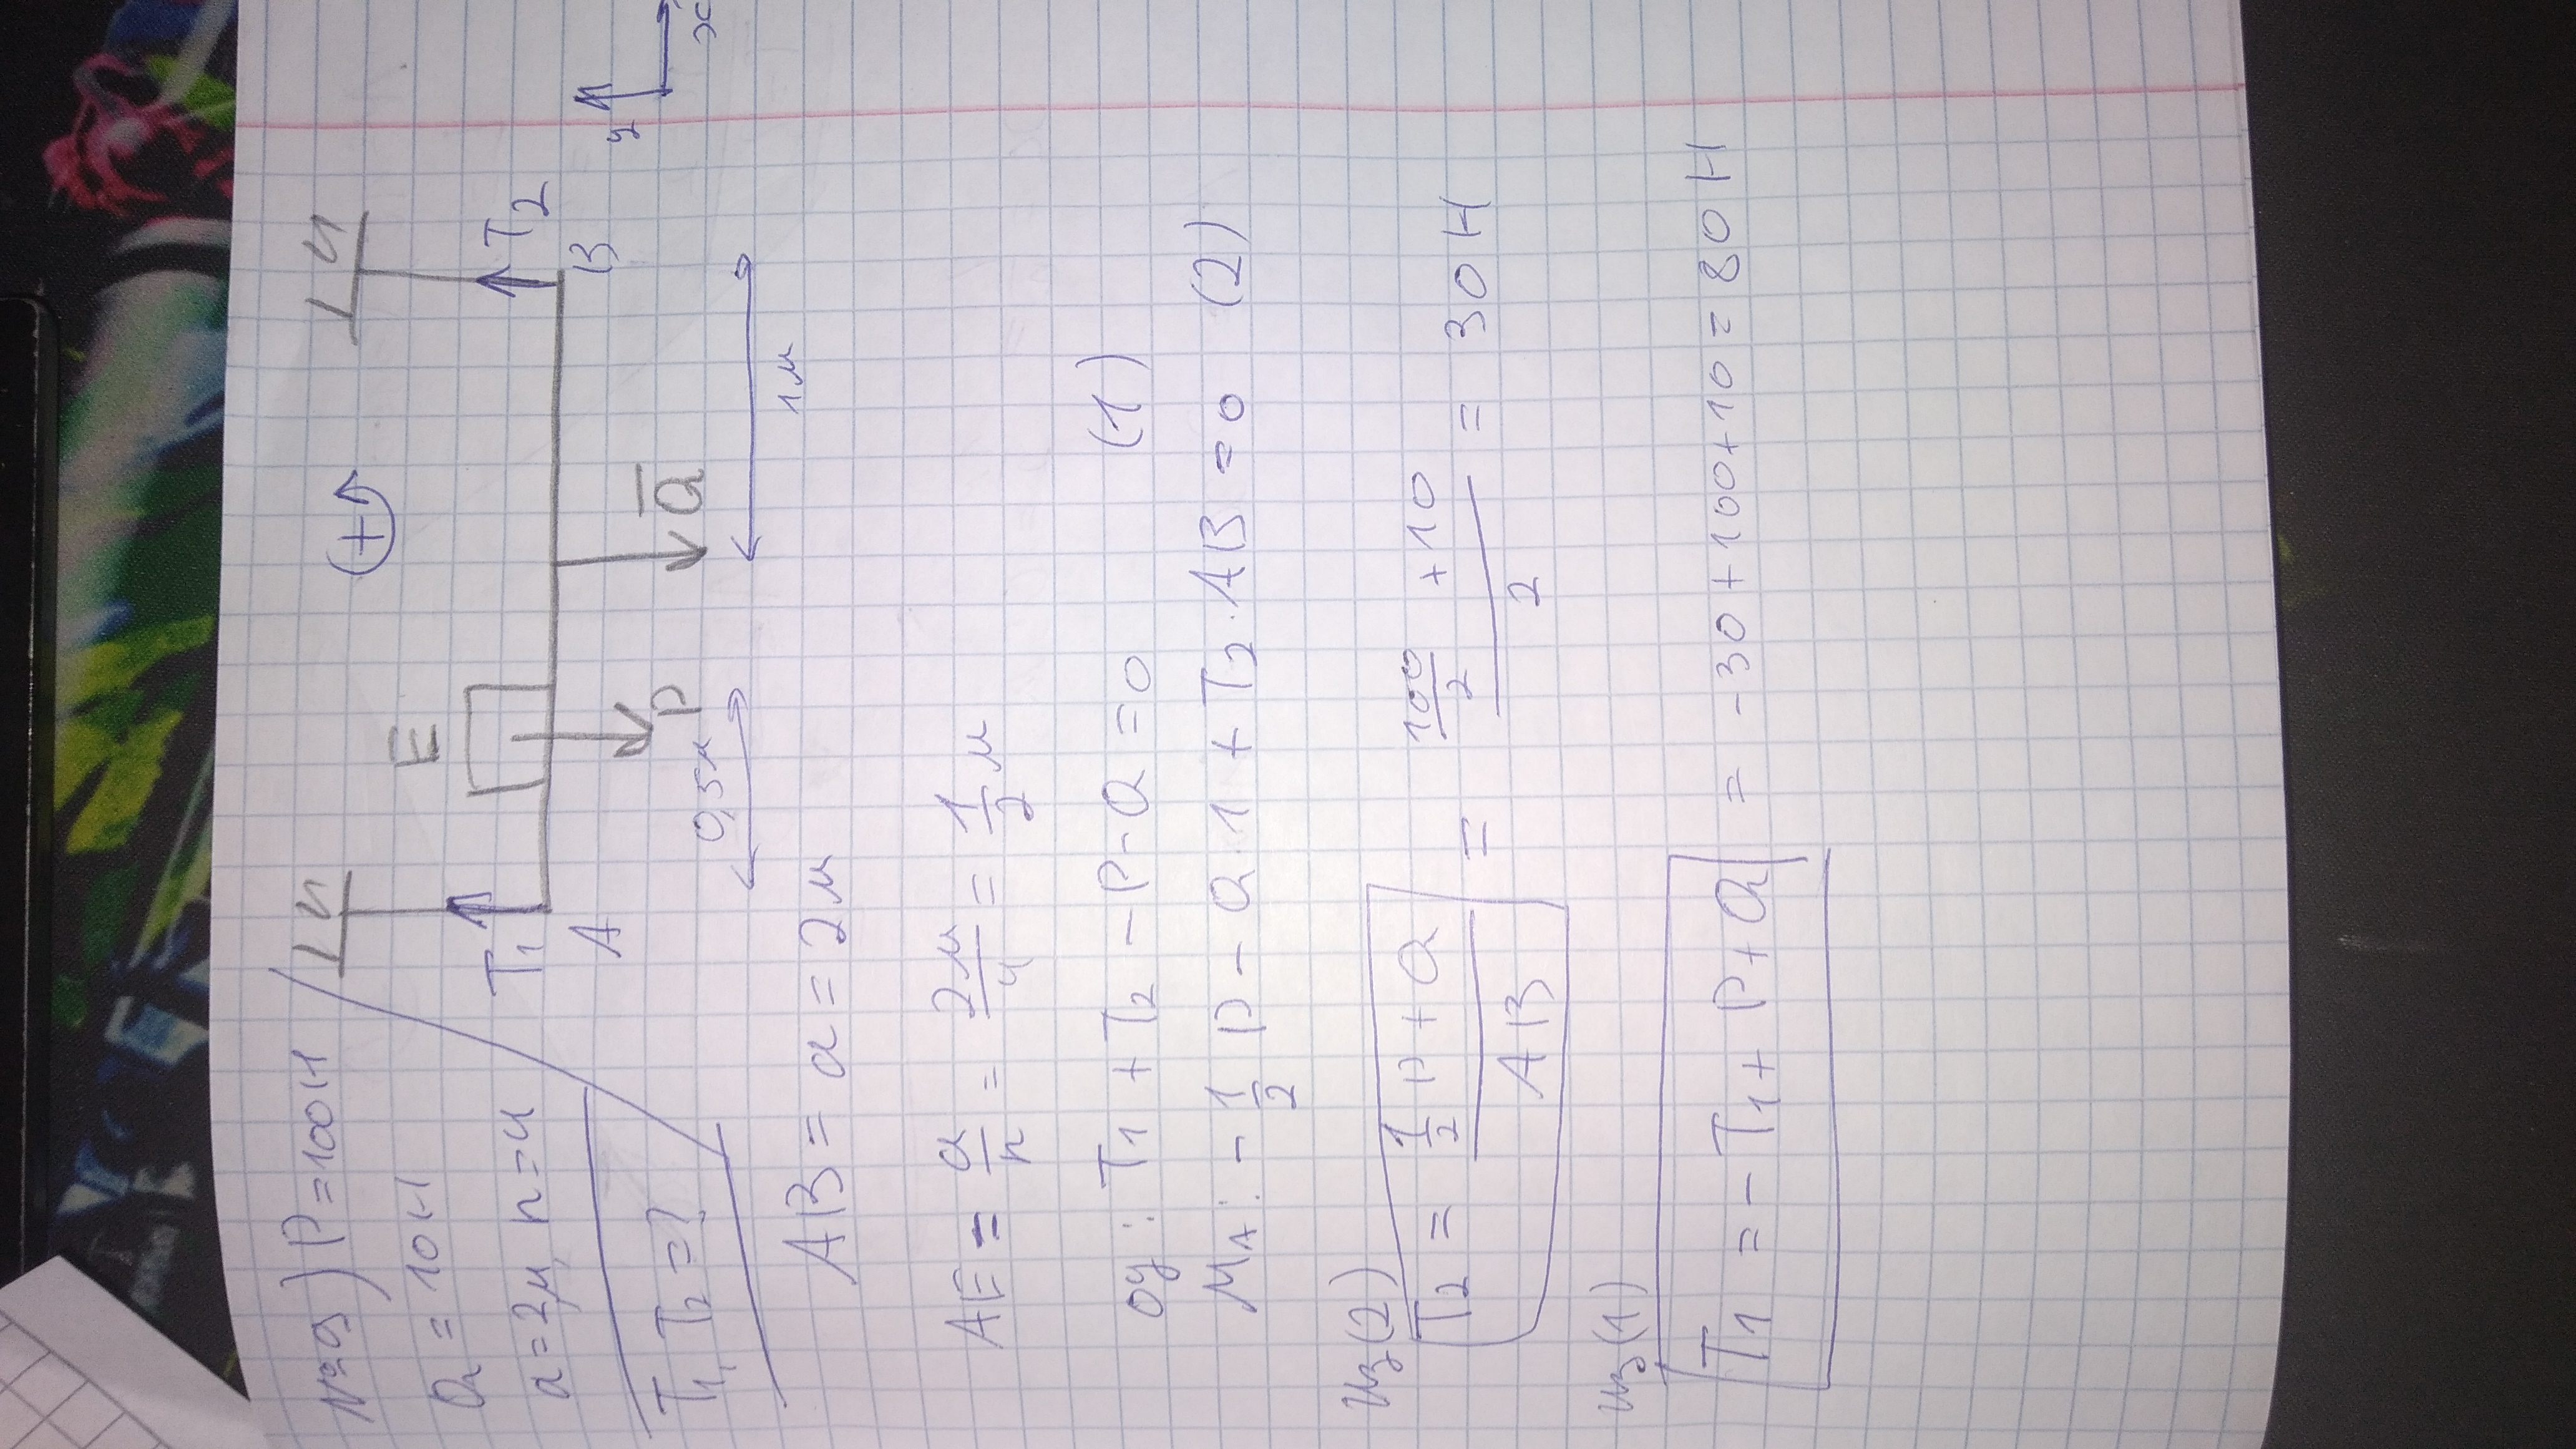 №9) P = 100 Н
Q = 10 Н
a = 2м, n = 4
T₁, T₂ = ?
E
T₁
T₂
A
B
P
Q̅
y
x
+
0,5 м
1 м
AB = a = 2 м
AE = a/n = 2м/4 = 1/2 м
oy: T₁ + T₂ - P - Q = 0 (1)
M_A: - 1/2 P - Q · 1 + T₂ · AB = 0 (2)
Из (2)
T₂ = (1/2 P + Q)/AB = (100/2 + 10)/2 = 30 Н
Из (1)
T₁ = - T₁ + P + Q = - 30 + 100 + 10 = 80 Н